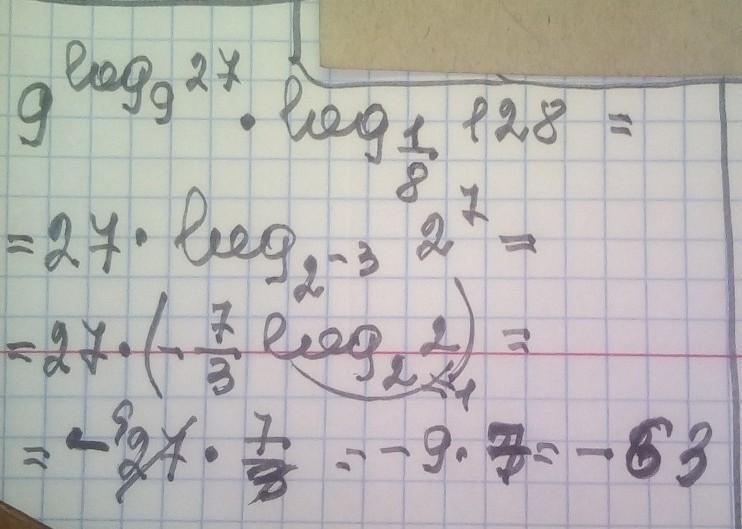 9^{log_9 27} · log_{1/8} 128 =
= 27 · log_{2^{-3}} 2^7 =
= 27 · (-7/3 log_2 2) =
=1
= -27 · 7/3 = -9 · 7 = -63